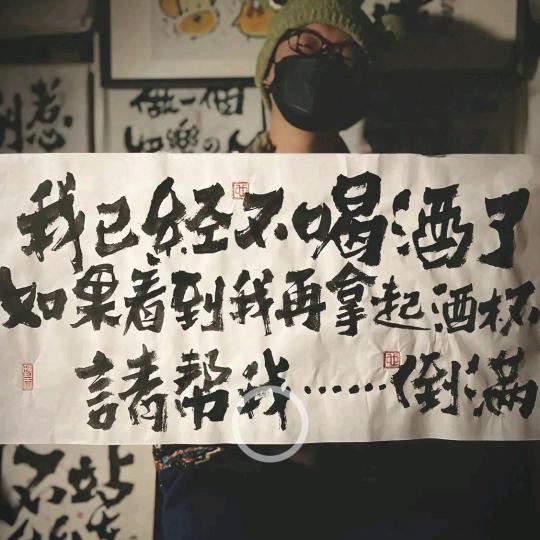 做一個
快樂の人
惹
我已经不喝酒了
如果看到我再拿起酒杯
請帮我……倒满
不站